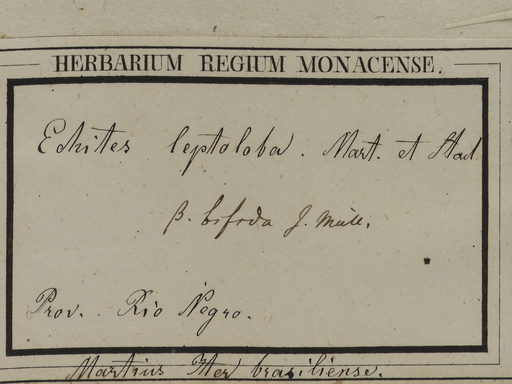 HERBARIUM REGIUM MONACENSE.
Echites leptoloba. Mart. et Stad
β. bifida J. Müll.
Prov. Rio Negro.
Martius Iter brasiliense.